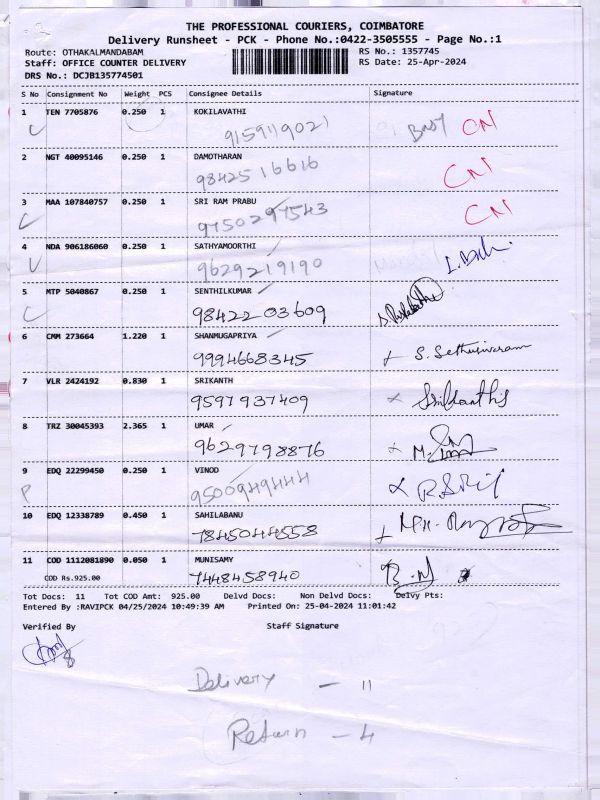 THE PROFESSIONAL COURIERS, COIMBATORE
Delivery Runsheet - PCK - Phone No.:0422-3505555 - Page No.:1
Route: OTHAKALMANDABAM RS No.: 1357745
Staff: OFFICE COUNTER DELIVERY RS Date: 25-Apr-2024
DRS No.: DCJB135774501
S No Consignment No Weight PCS Consignee Details Signature
1 TEN 7705876 0.250 1 KOKILAVATHI
9159119021
2 NGT 40095146 0.250 1 DAMOTHARAN
9842516616
3 MAA 107840757 0.250 1 SRI RAM PRABU
9750297543
4 NDA 906186060 0.250 1 SATHYAMOORTHI
9629219190
5 MTP 5040867 0.250 1 SENTHILKUMAR
9842203609
6 CMM 273664 1.220 1 SHANMUGAPRIYA
9994668345 S. Sethusivaram
7 VLR 2424192 0.830 1 SRIKANTH
9597937409
8 TRZ 30045393 2.365 1 UMAR
9629798876
9 EDQ 22299450 0.250 1 VINOD
P 9500949444
10 EDQ 12338789 0.450 1 SAHILABANU
7845044558
11 COD 1112081890 0.050 1 MUNISAMY
COD Rs.925.00 7448458940
Tot Docs: 11 Tot COD Amt: 925.00 Delvd Docs: Non Delvd Docs: Delvy Pts:
Entered By :RAVIPCK 04/25/2024 10:49:39 AM Printed On: 25-04-2024 11:01:42
Verified By Staff Signature
Delivery - 11
Return - 4